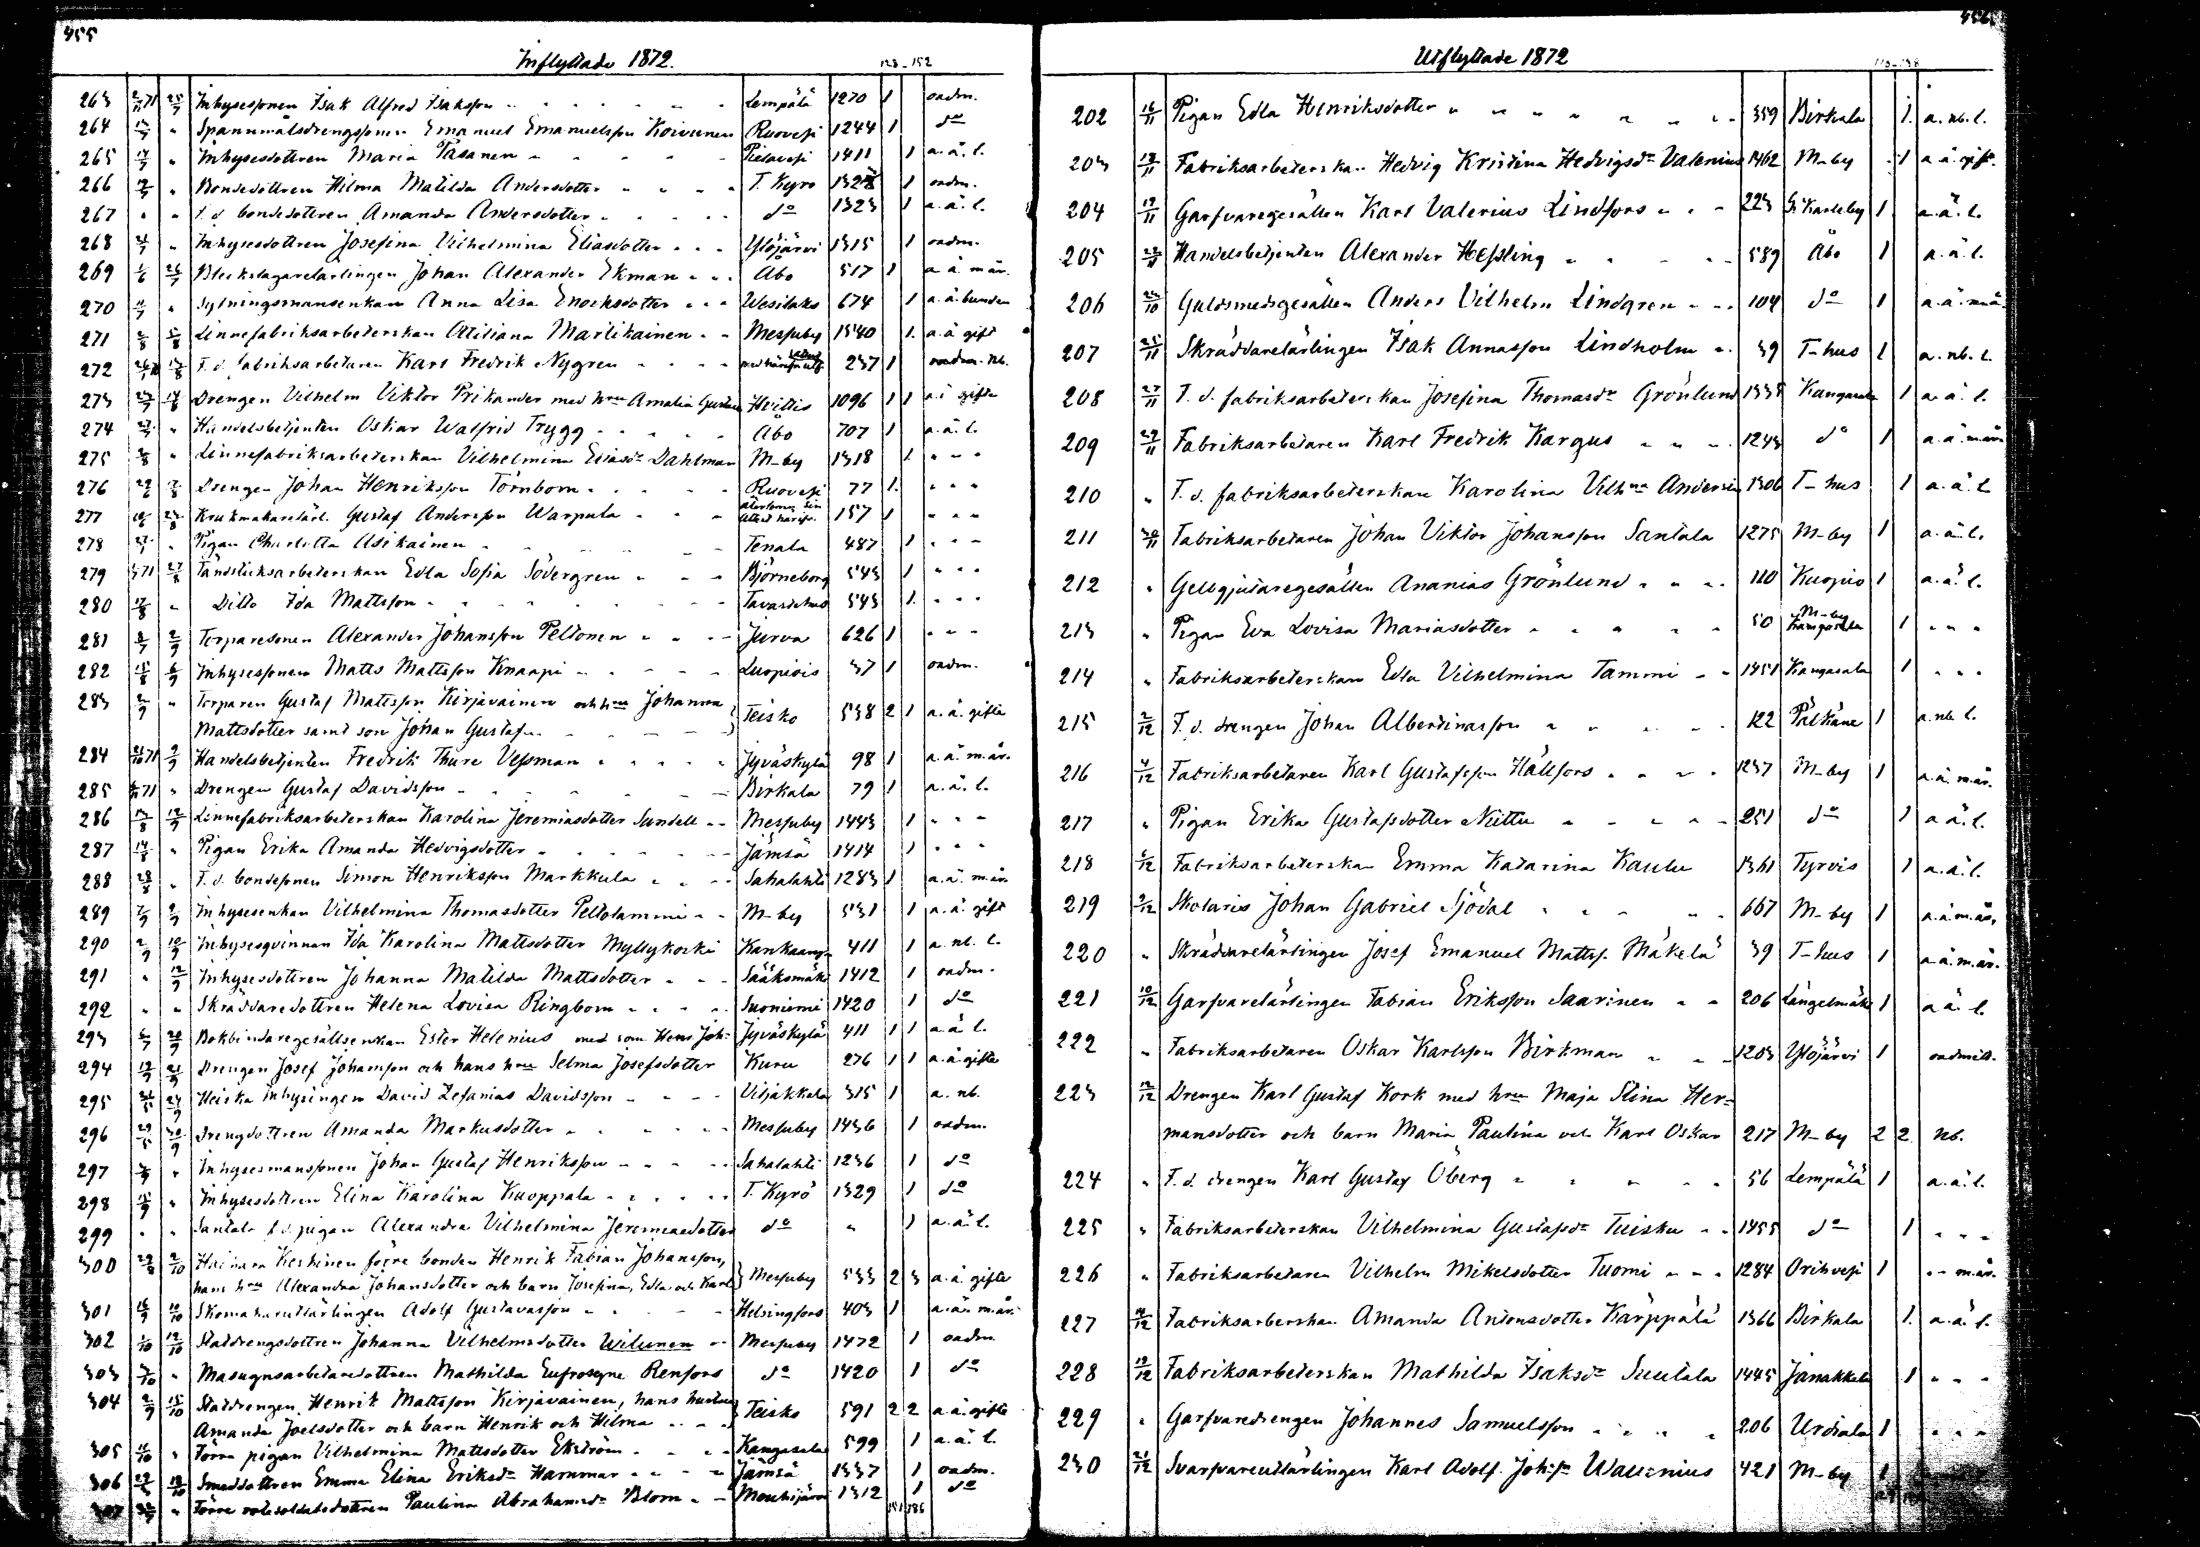 455
Inflyttade 1872.
128-152
263 2/11 71 25/7 Inhysessonen Isak Alfred Isaksson Lempälä 1270 1 oadm.
264 " Spannmålsdrengssonen Emanuel Emanuelsson Koivunen Ruovesi 1244 1 do
265 " Inhysesdottren Maria Pasanen Pielavesi 1411 1 a. ä. l.
266 " Bondedottren Hilma Matilda Andersdotter T. Kyro 1 oadm.
267 " " f. d. bondedottren Amanda Andersdotter do 1323 1 a. ä. l.
268 " Inhysesdottren Josefina Vilhelmina Eliasdotter Ylöjärvi 1315 1 oadm.
269 1/6 26/7 Bleckslagarelärlingen Johan Alexander Ekman Åbo 517 1 a. ä. m. är.
270 " Sytningsmansenkan Anna Lisa Enocksdotter Wesilaks 674 1 a. ä. bunden
271 Linnefabriksarbeterskan Atiliana Martikainen Messuby 1540 1 a. ä. gift
272 F. d. fabriksarbetaren Karl Fredrik Nygren 237 1 oadm. nb.
273 Drengen Vilhelm Viktor Prikander med hru Amalia Gustava Hvittis 1096 1 1 a. ä. gifta
274 " Handelsbetjenten Oskar Walfrid Trygg Åbo 707 1 a. ä. l.
275 " Linnefabriksarbeterskan Vilhelmina Eliasdr Dahlman M-by 1318 1 " " "
276 Drengen Johan Henriksson Törnbom Ruovesi 77 1 " " "
277 Krukmakarelärl. Gustaf Andersson Warpula 157 1 " " "
278 " Pigan Charlotta Asikainen Tenala 487 1 " " "
279 Tändsticksarbeterskan Edla Sofia Södergren Björneborg 543 1 " " "
280 " Ditto Ida Mattsson Tavastehus 543 1 " " "
281 Torparesonen Alexander Johansson Peltonen Jurva 626 1 " " "
282 Inhysessonen Matts Mattsson Knaapi Luopiois 37 1 oadm.
283 " Torparen Gustaf Mattsson Kirjavainen och hru Johanna
Mattsdotter samt son Johan Gustaf Teisko 538 2 1 a. ä. gifta
284 Handelsbetjenten Fredrik Thure Vessman Jyväskylä 98 1 a. ä. m. är.
285 " Drengen Gustaf Davidsson Birkala 79 1 a. ä. l.
286 Linnefabriksarbeterskan Karolina Jeremiasdotter Sundell Messuby 1443 1 " " "
287 " Pigan Erika Amanda Hedvigsdotter Jämsä 1414 1 " " "
288 " F. d. bondesonen Simon Henriksson Markkula Sahalahti 1283 1 a. ä. m. är.
289 Inhysesenkan Vilhelmina Thomasdotter Peltolammi M-by 531 1 a. ä. gift
290 Inhysesqvinnan Ida Karolina Mattsdotter Myllykoski Kankaanp. 411 1 a. nb. l.
291 " Inhysesdottren Johanna Matilda Mattsdotter Sääksmäki 1412 1 oadm.
292 " " Skräddaredottren Helena Lovisa Ringbom Suoniemi 1420 1 do
293 Bokbindaregesällsenkan Ester Helenius med son Hens Joh. Jyväskylä 411 1 1 a. ä. l.
294 Drengen Josef Johansson och hans hru Selma Josefsdotter Kuru 276 1 1 a. ä. gifta
295 Heiska inhysingen David Zefanias Davidsson Viljakkala 315 1 a. nb.
296 Drengdottren Amanda Markusdotter Messuby 1436 1 oadm.
297 " Inhysesmanssonen Johan Gustaf Henriksson Sahalahti 1236 1 do
298 " Inhysesdottren Elina Karolina Kuoppala T. Kyrö 1329 1 do
299 " " Santala f. d. pigan Alexandra Vilhelmina Jeremiasdotter do " 1 a. ä. l.
300 Keskinen förre bonden Henrik Fabian Johansson,
hans hru Alexandra Johansdotter och barn Josefina, Edla och Karl Messuby 533 2 3 a. ä. gifta
301 Skomakarelärlingen Adolf Gustavasson Helsingfors 403 1 a. ä. m. är.
302 Staddrengsdottren Johanna Vilhelmsdotter Wilunen Messuby 1472 1 oadm.
303 " Masugnsarbetaredottren Mathilda Eufrosyne Renfors do 1420 1 do
304 Staddrengen Henrik Mattsson Kirjavainen, hans hustru
Amanda Joelsdotter och barn Henrik och Hilma Teisko 591 2 2 a. ä. gifta
305 " Förra pigan Vilhelmina Mattsdotter Ekström Kangasala 599 1 a. ä. l.
306 Smeddottren Emma Elina Eriksdr Hammar Jämsä 1337 1 oadm.
307 " Förre rotesoldatsdottren Paulina Abrahamsdr Blom Mouhijärvi 1312 1 do
151 186
456
Utflyttade 1872
202 16/11 Pigan Edla Henriksdotter 359 Birkala 1 a. nb. l.
203 Fabriksarbeterskan Hedvig Kristina Hedvigsdr Valenius 1462 M-by 1 a. ä. gift.
204 Garfvaregesällen Karl Valerius Lindfors 223 G. Karleby 1 a. ä. l.
205 Handelsbetjenten Alexander Hessling 589 Åbo 1 a. ä. l.
206 Guldsmedsgesällen Anders Vilhelm Lindgren 104 do 1 a. ä. m. är.
207 25/11 Skräddarelärlingen Isak Annasson Lindholm 39 T-hus 1 a. nb. l.
208 27/11 F. d. fabriksarbeterskan Josefina Thomasdr Grönlund 1338 Kangasala 1 a. ä. l.
209 29/11 Fabriksarbetaren Karl Fredrik Kargus 1243 do 1 a. ä. m. är.
210 " F. d. fabriksarbeterskan Karolina Vilhna Andersin 1306 T-hus 1 a. ä. l.
211 30/11 Fabriksarbetaren Johan Viktor Johansson Santala 1275 M-by 1 a. ä. l.
212 " Gelbgjutaregesällen Ananias Grönlund 110 Kuopio 1 a. ä. l.
213 " Pigan Eva Lovisa Mariasdotter 50 M-by 1 " " "
214 " Fabriksarbeterskan Edla Vilhelmina Tammi 1451 Kangasala 1 " " "
215 2/12 F. d. drengen Johan Albertinasson 122 Pälkäne 1 a. nb. l.
216 4/12 Fabriksarbetaren Karl Gustafsson Hällfors 1237 M-by 1 a. ä. m. är.
217 " Pigan Erika Gustafsdotter Niittu 251 do 1 a. ä. l.
218 Fabriksarbeterskan Emma Katarina Kaulu 1361 Tyrvis 1 a. ä. l.
219 Skolaris Johan Gabriel Sjödal 667 M-by 1 a. ä. m. är.
220 " Skräddarelärlingen Josef Emanuel Mattss. Mäkelä 39 T-hus 1 a. ä. m. är.
221 10/12 Garfvarelärlingen Fabian Eriksson Saarinen 206 Längelmäki 1 a. ä. l.
222 " Fabriksarbetaren Oskar Karlsson Birkman 1203 Ylöjärvi 1 oadmitt.
223 Drengen Karl Gustaf Kork med hru Maja Stina Her-
mansdotter och barn Maria Paulina och Karl Oskar 217 M-by 2 2 nb.
224 " F. d. drengen Karl Gustaf Öberg 56 Lempälä 1 a. ä. l.
225 " Fabriksarbeterskan Vilhelmina Gustafsdr Tuisku 1455 do 1 " " "
226 " Fabriksarbetaren Vilhelm Mikelsdotter Tuomi 1284 Orihvesi 1 " " m. är.
227 Fabriksarberskan Amanda Antonsdotter Kärppälä 1366 Birkala 1 a. ä. l.
228 Fabriksarbeterskan Mathilda Isaksdr Suutala 1445 Janakkala 1 " " "
229 " Garfvaredrengen Johannes Samuelsson 206 Urdiala 1 " " "
230 Svarfvarelärlingen Karl Adolf Johsn Wallenius 421 M-by 1